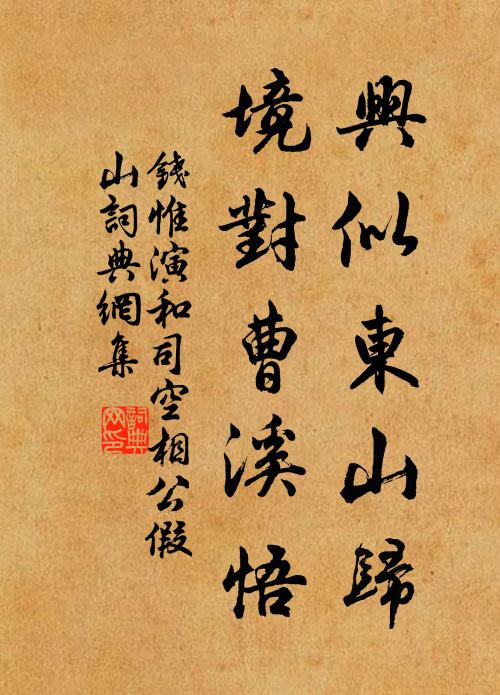 興似東山歸
境對曹溪悟
錢惟演和司空相公假
山詞典網集
詞典
网印